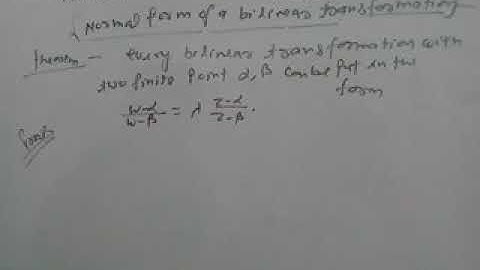 Normal form of a bilinear transformation
Theorem - every bilinear transformation with
two finite point α, β can be put in the
form
w-α/w-β = λ z-α/z-β.
Proof